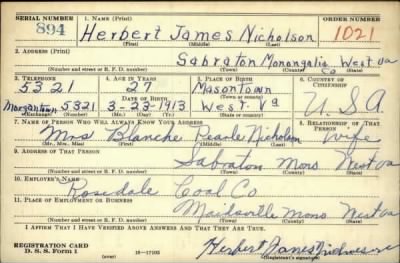 SERIAL NUMBER 1. NAME (Print) ORDER NUMBER
894 Herbert James Nicholson 1021
(First) (Middle) (Last)
2. ADDRESS (Print)
Sabraton Monongalia West Va
Co
(Number and street or R. F. D. number) (Town) (County) (State)
3. TELEPHONE 4. AGE IN YEARS 5. PLACE OF BIRTH 6. COUNTRY OF CITIZENSHIP
5321 27 Masontown
(Town or county)
DATE OF BIRTH
Morgantown 5321 3-23-1913 West Va U.S.A
(Exchange) (Number) (Mo.) (Day) (Yr.) (State or country)
7. NAME OF PERSON WHO WILL ALWAYS KNOW YOUR ADDRESS 8. RELATIONSHIP OF THAT PERSON
Mrs Blanche Pearle Nicholson Wife
(Mr., Mrs., Miss) (First) (Middle) (Last)
9. ADDRESS OF THAT PERSON
Sabraton Mono West Va
(Number and street or R. F. D. number) (Town) (County) (State)
10. EMPLOYER'S NAME
Rosedale Coal Co
11. PLACE OF EMPLOYMENT OR BUSINESS
Maidsville Mono West Va
(Number and street or R. F. D. number) (Town) (County) (State)
I AFFIRM THAT I HAVE VERIFIED ABOVE ANSWERS AND THAT THEY ARE TRUE.
REGISTRATION CARD
D. S. S. Form 1 16-17105 Herbert James Nicholson
(Registrant's signature)